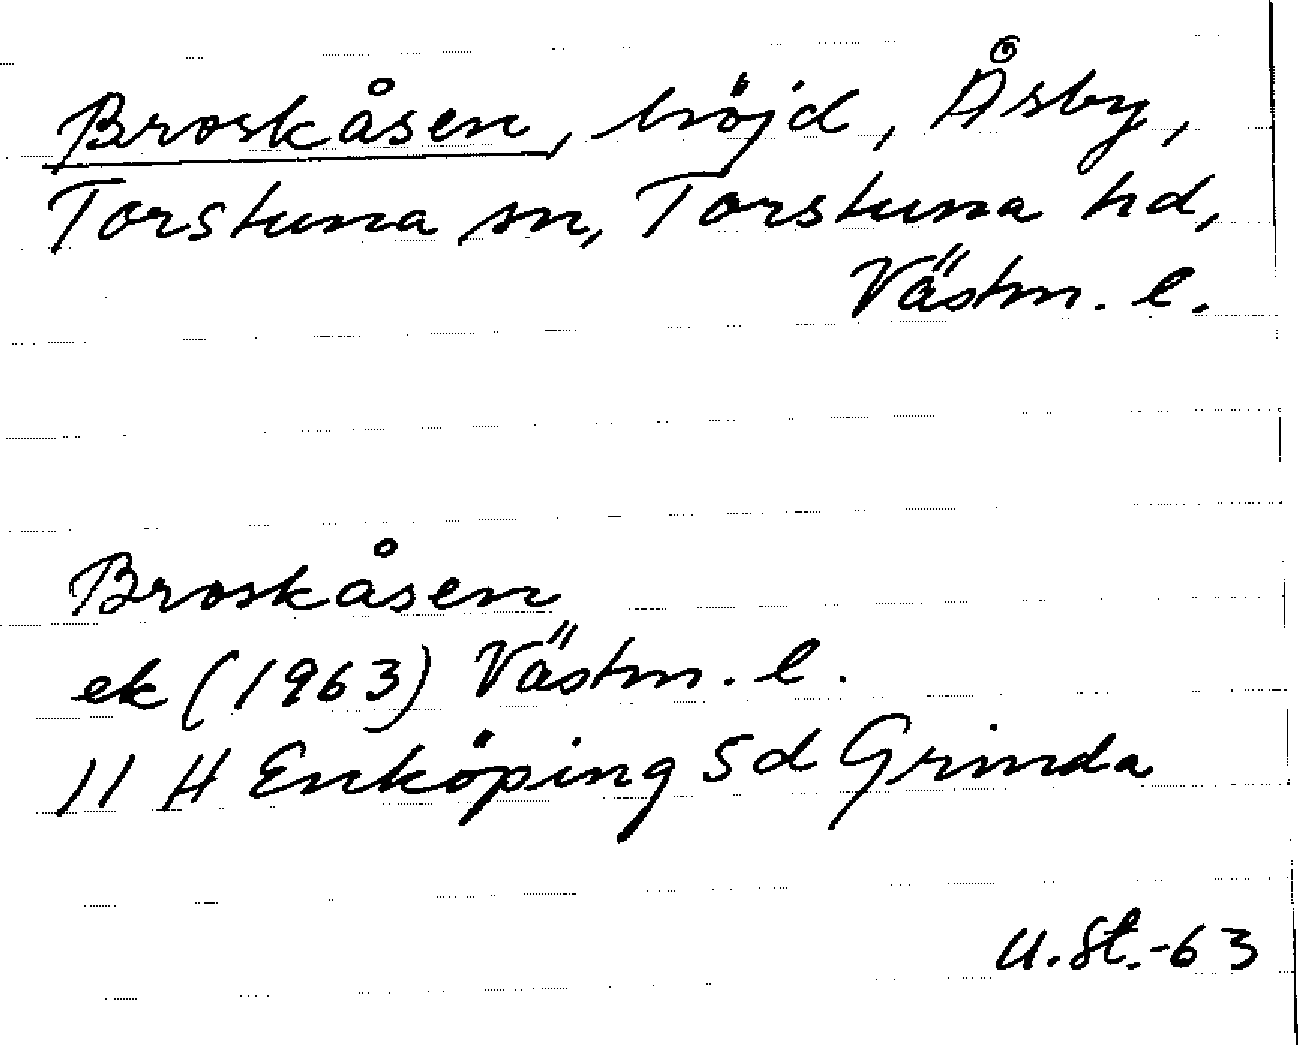 Broskåsen, höjd, Åsby,
Torstuna sn, Torstuna hd,
Västm. l.
Broskåsen
ek (1963) Västm. l.
11 H Enköping Sd Grinda
U.St.-63